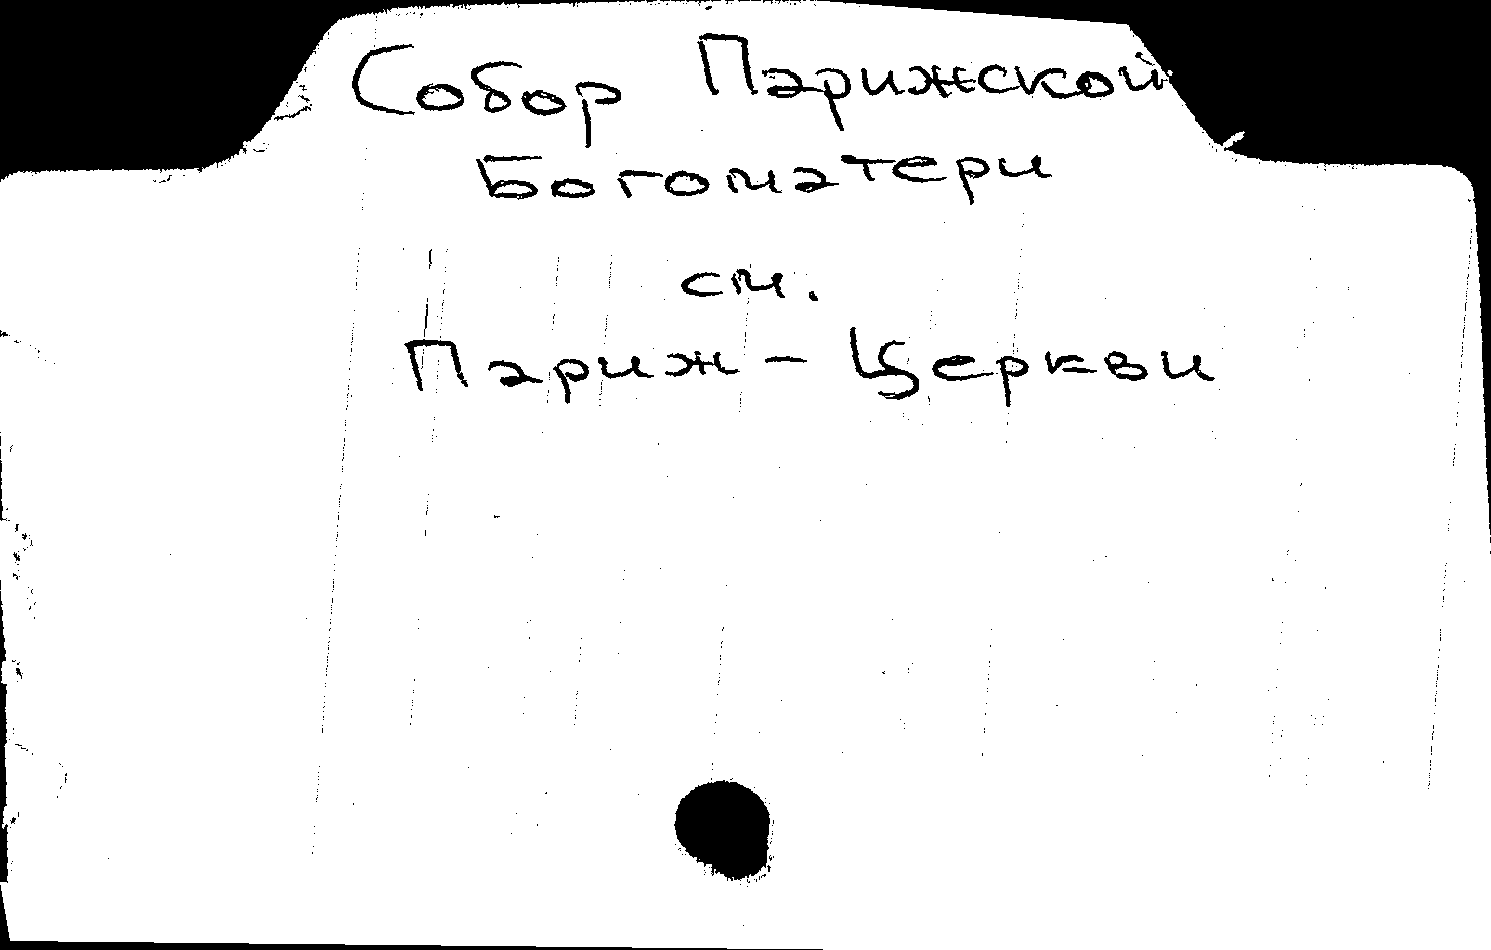 Собор Парижской
Богоматери
см.
Париж – Церкви